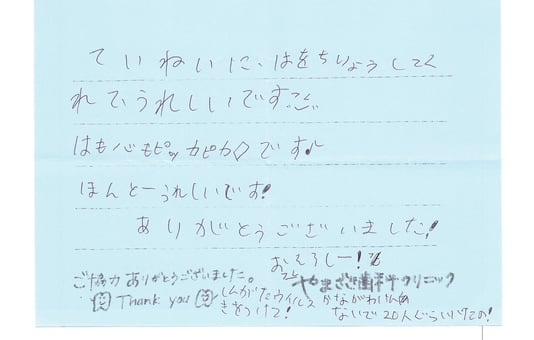 ていねいに、はをちりょうしてく
れて、うれしいです
はも心もピッカピカ◇です♪
ほんとーうれしいです!
ありがとうございました!
ご協力ありがとうございました。
やまざき歯科クリニック
Thank you
しんがたウイルス
きをつけて!
ないで20人ぐらい